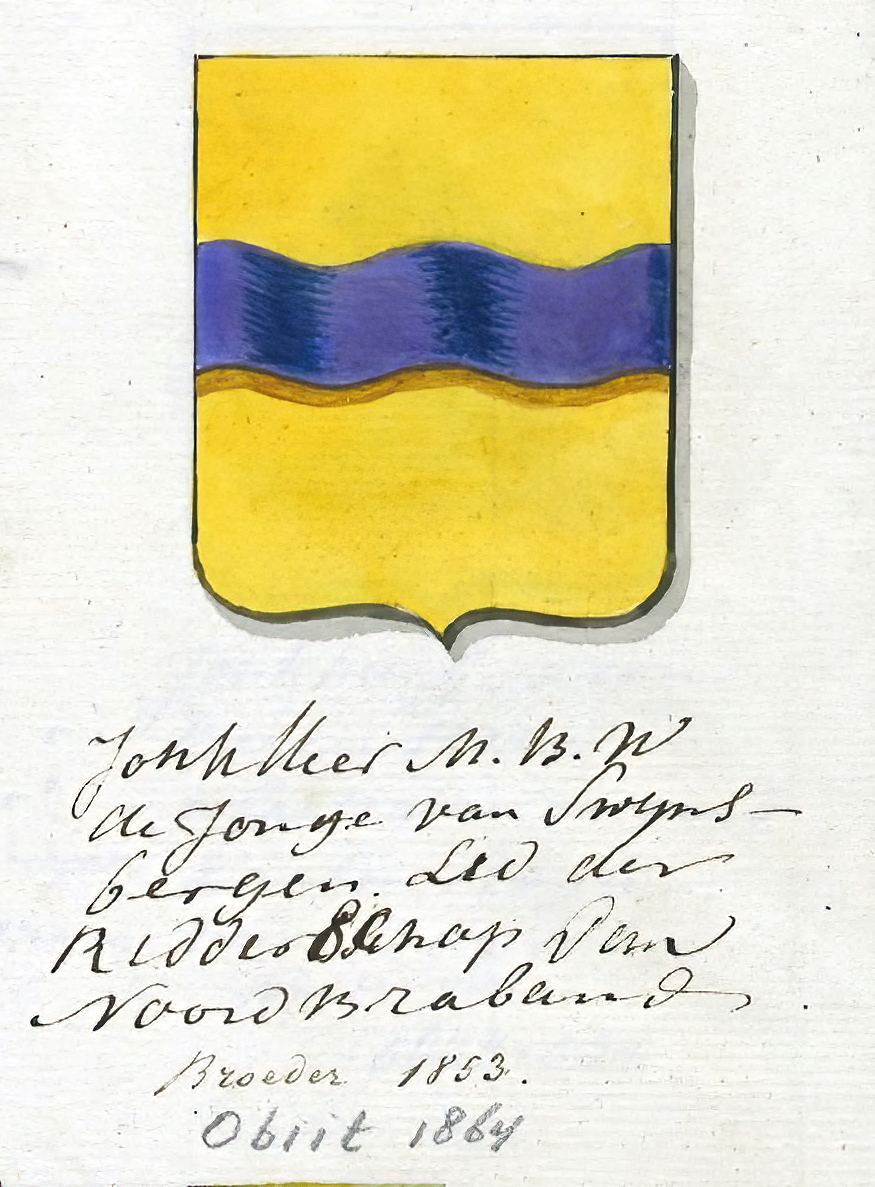 Jonkheer M. B. W
de Jonge van Swyns-
bergen. Lid der
Ridderschap van
Noord Braband
Broeder 1853.
Obiit 1864